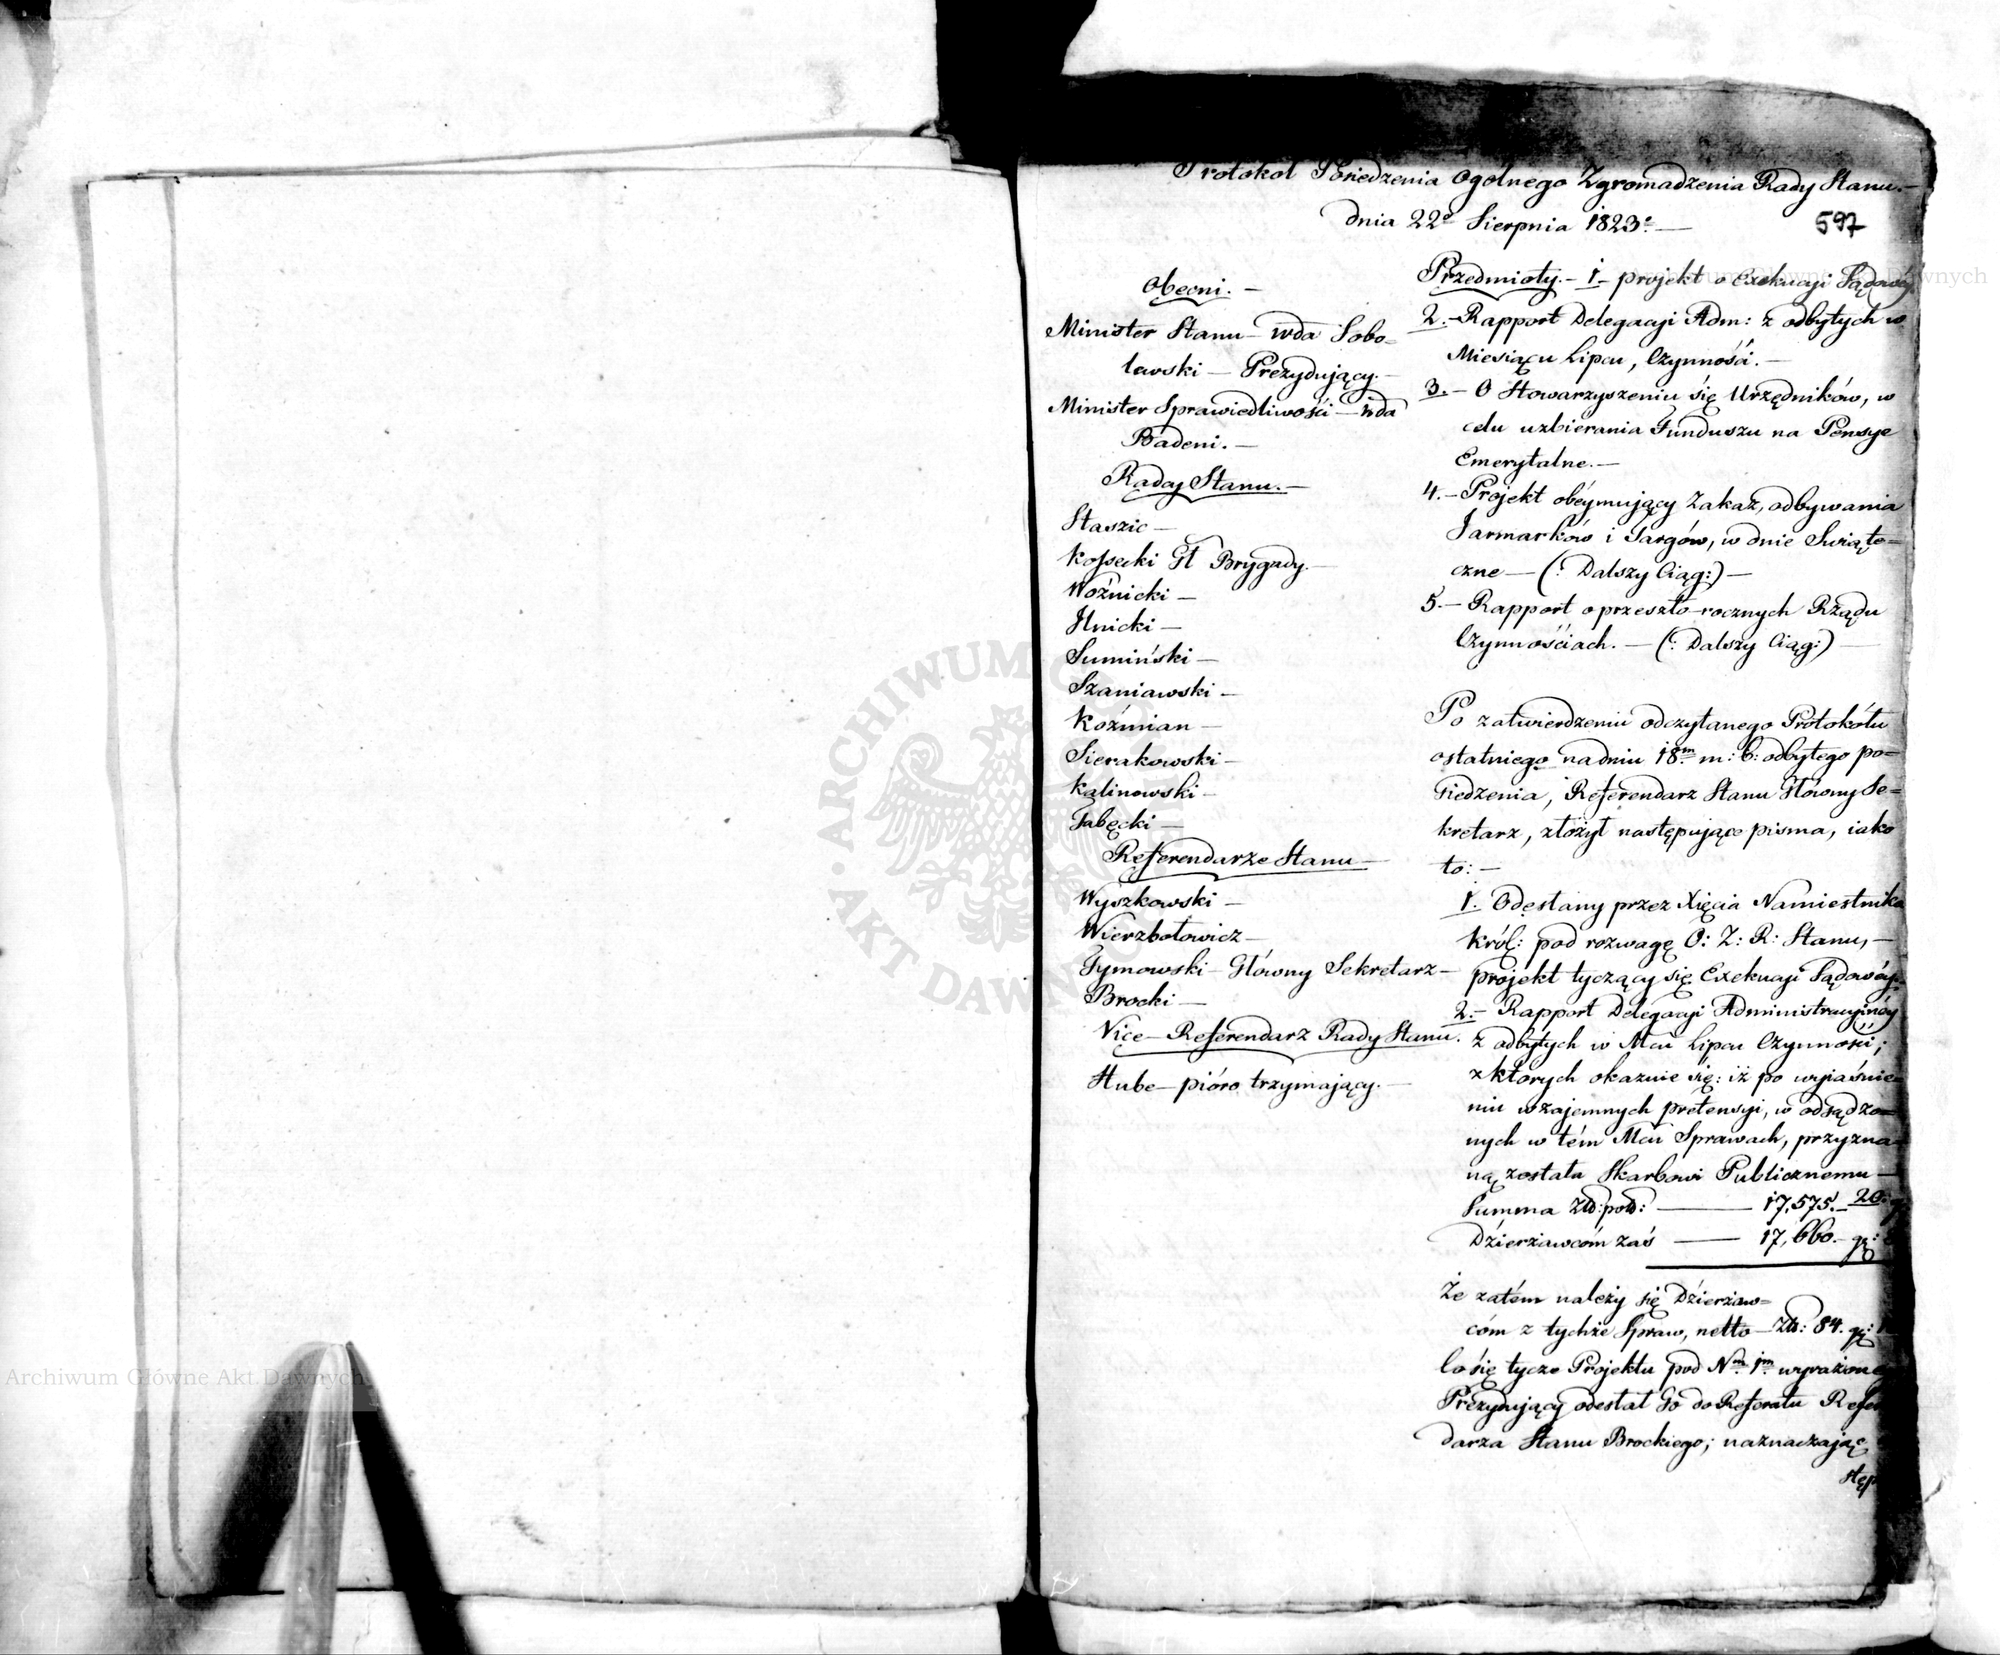 Protokol Posiedzenia Ogólnego Zgromadzenia Rady Stanu.—
dnia 22º Sierpnia 1823º.—
597
Obecni.—
Minister Stanu— Wda Sobo=
lewski — Prezydujący.—
Minister Sprawiedliwości — Wda
Badeni.—
Radcy Stanu.—
Staszic —
Kossecki Gł Brygady.—
Woźnicki —
Ilnicki —
Sumiński —
Szaniawski —
Koźmian —
Sierakowski —
Kalinowski —
Tabęcki —
Referendarze Stanu —
Wyszkowski —
Wierzbołowicz —
Tymowski — Główny Sekretarz —
Brocki —
Vice — Referendarz Rady Stanu.
Hube — pióro trzymający.—
Przedmioty.— 1— projekt o Exekucyi Sądowéy
2.— Rapport Delegacyi Adm: z odbytych w
Miesiącu Lipcu, Czynności.—
3.— O Stowarzyszeniu się Urzędników, w
celu uzbierania Funduszu na Pensye
Emerytalne.—
4.— Projekt obéymujący Zakaz, odbywania
Jarmarków i Targów, w dnie Świąte=
czne — (: Dalszy Ciąg:) —
5.— Rapport o przeszło-rocznych Rządu
Czynnościach. — (: Dalszy Ciąg:) —
Po zatwierdzeniu odczytanego Protokółu
ostatniego na dniu 18m m: b: odbytego po=
siedzenia, Referendarz Stanu Główny Se=
kretarz, złożył następujące pisma, iako
to: —
1. Odesłany przez Xięcia Namiestnika
Król: pod rozwagę O: Z: R: Stanu, —
projekt tyczący się Exekucyi Sądowéy.
2.— Rapport Delegacyi Administracyinéy
z odbytych w Mcu Lipcu Czynności;
z których okazuie się: iż po wyiaśnie=
niu wzajemnych pretensyi, w odsądzo=
nych w tém Mcu Sprawach, przyzna=
ną została Skarbowi Publicznemu —
Summa Złł: pols: — 17,575.— 20. g
Dzierżawcóm zaś — 17,660.— gr:
Że zatém należy się Dzierżaw=
cóm z tychże Spraw, netto — Złł: 84. gr: 1
Co się tycze Projektu pod Nm 1m wyrażone
Prezydujący odesłał Go do Referatu Refe
darza Stanu Brockiego; naznaczając
stęp
Archiwum Główne Akt Dawnych
Archiwum Główne Akt Dawnych
ARCHIWUM GŁÓWNE AKT DAWNYCH